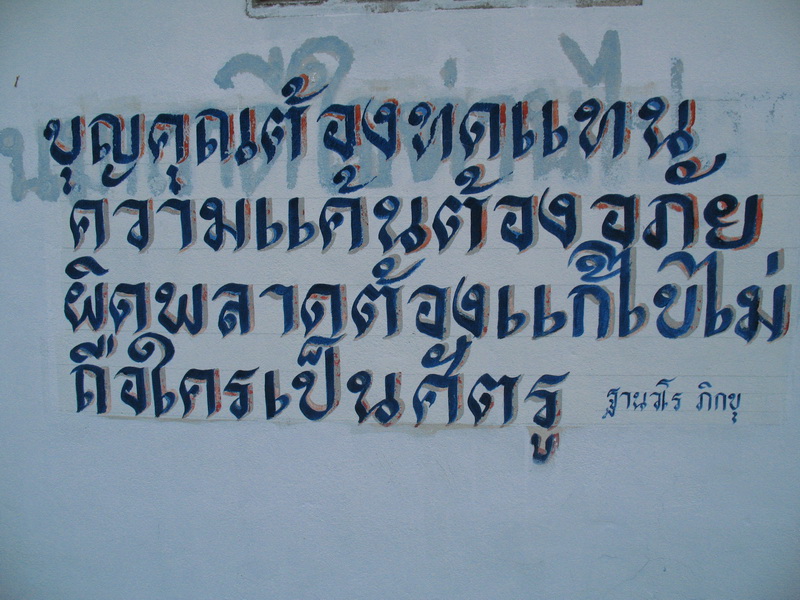 บุญคุณต้องทดแทน
ความแค้นต้องอภัย
ผิดพลาดต้องแก้ไขไม่
ถือใครเป็นศัตรู
ฐานวโร ภิกขุ